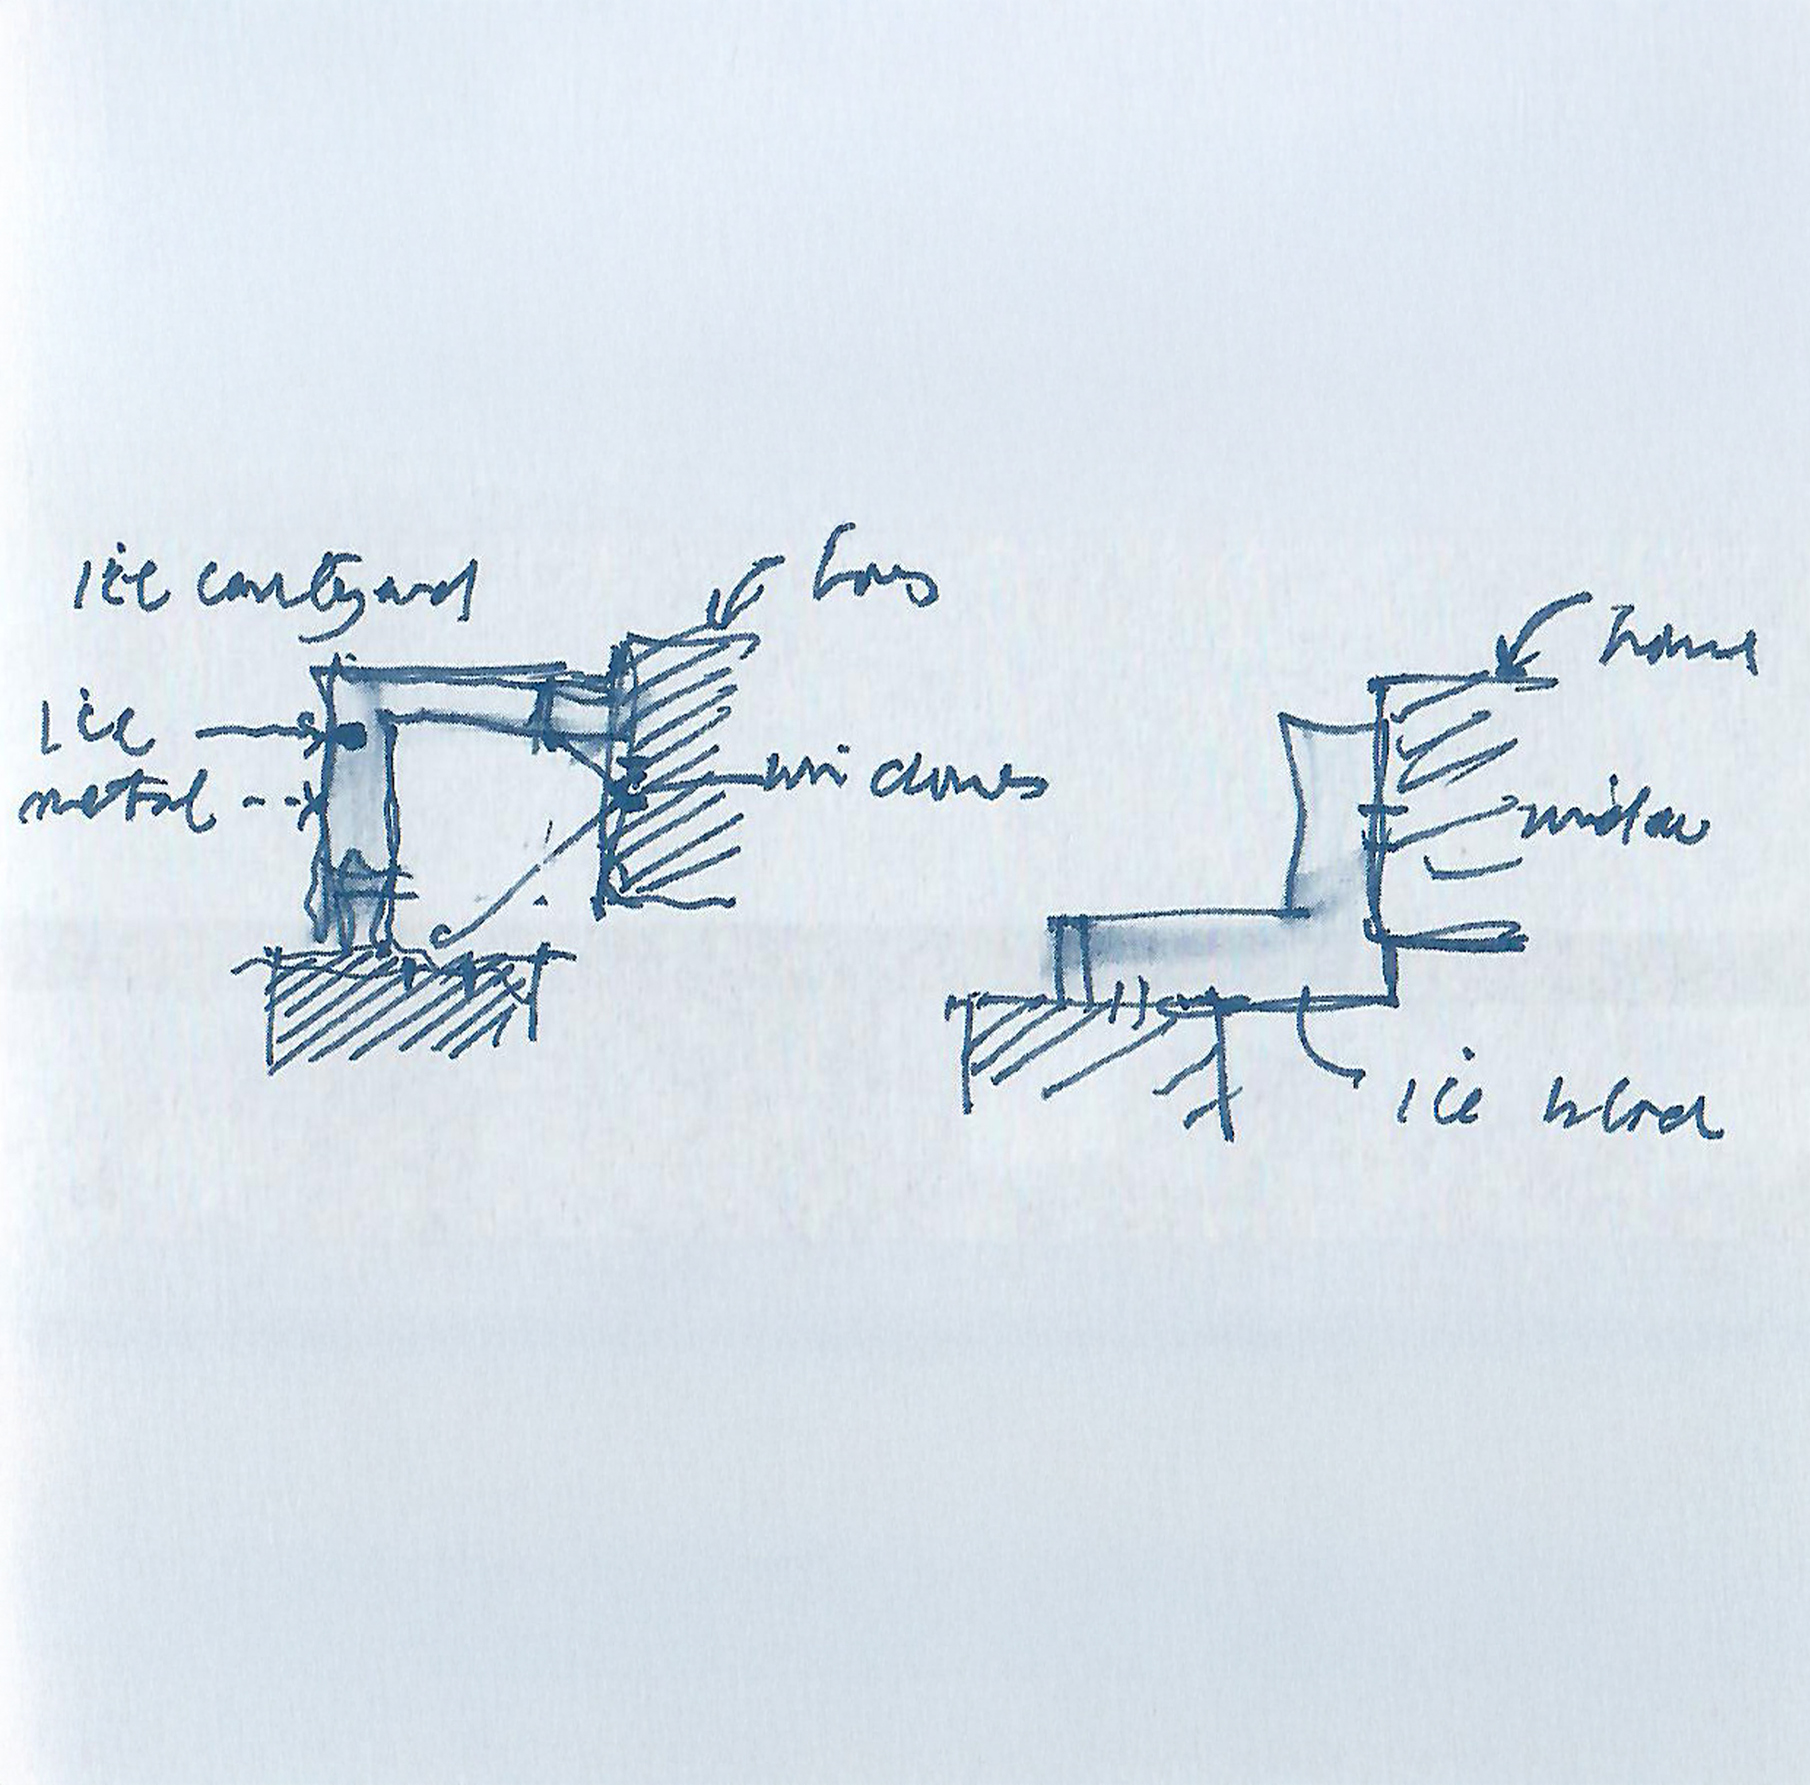 ice courtyard
ice
metal
windows
house
window
ice block